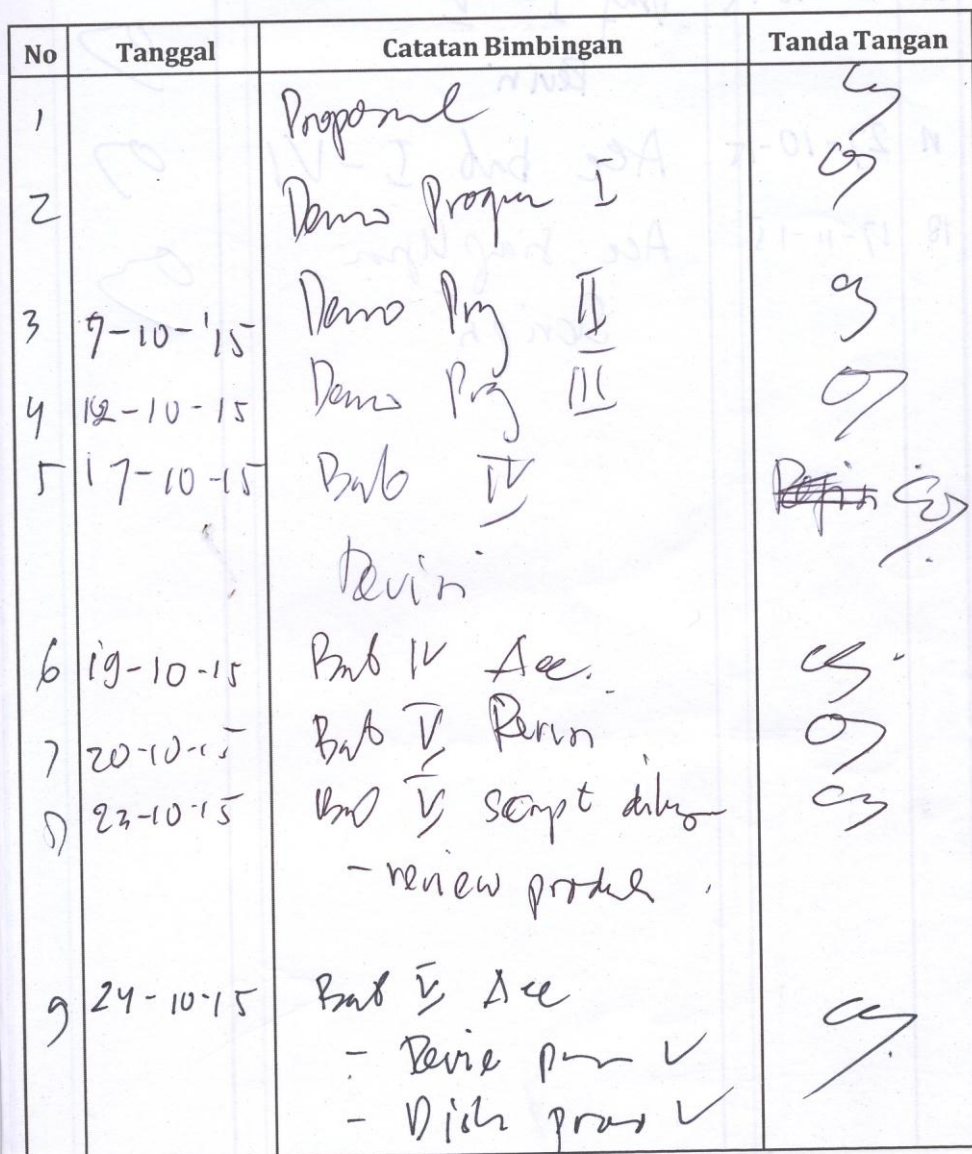 No Tanggal Catatan Bimbingan Tanda Tangan
1 Proposal
2 Demo Program I
3 9-10-'15 Demo Prg II
4 12-10-15 Demo Prg III
5 17-10-15 Bab IV
Revisi
6 19-10-15 Bab IV Acc.
7 20-10-15 Bab V Revisi
8 23-10-15 Bab V Script
- review produk
9 24-10-15 Bab V Acc
- ✓
- ✓